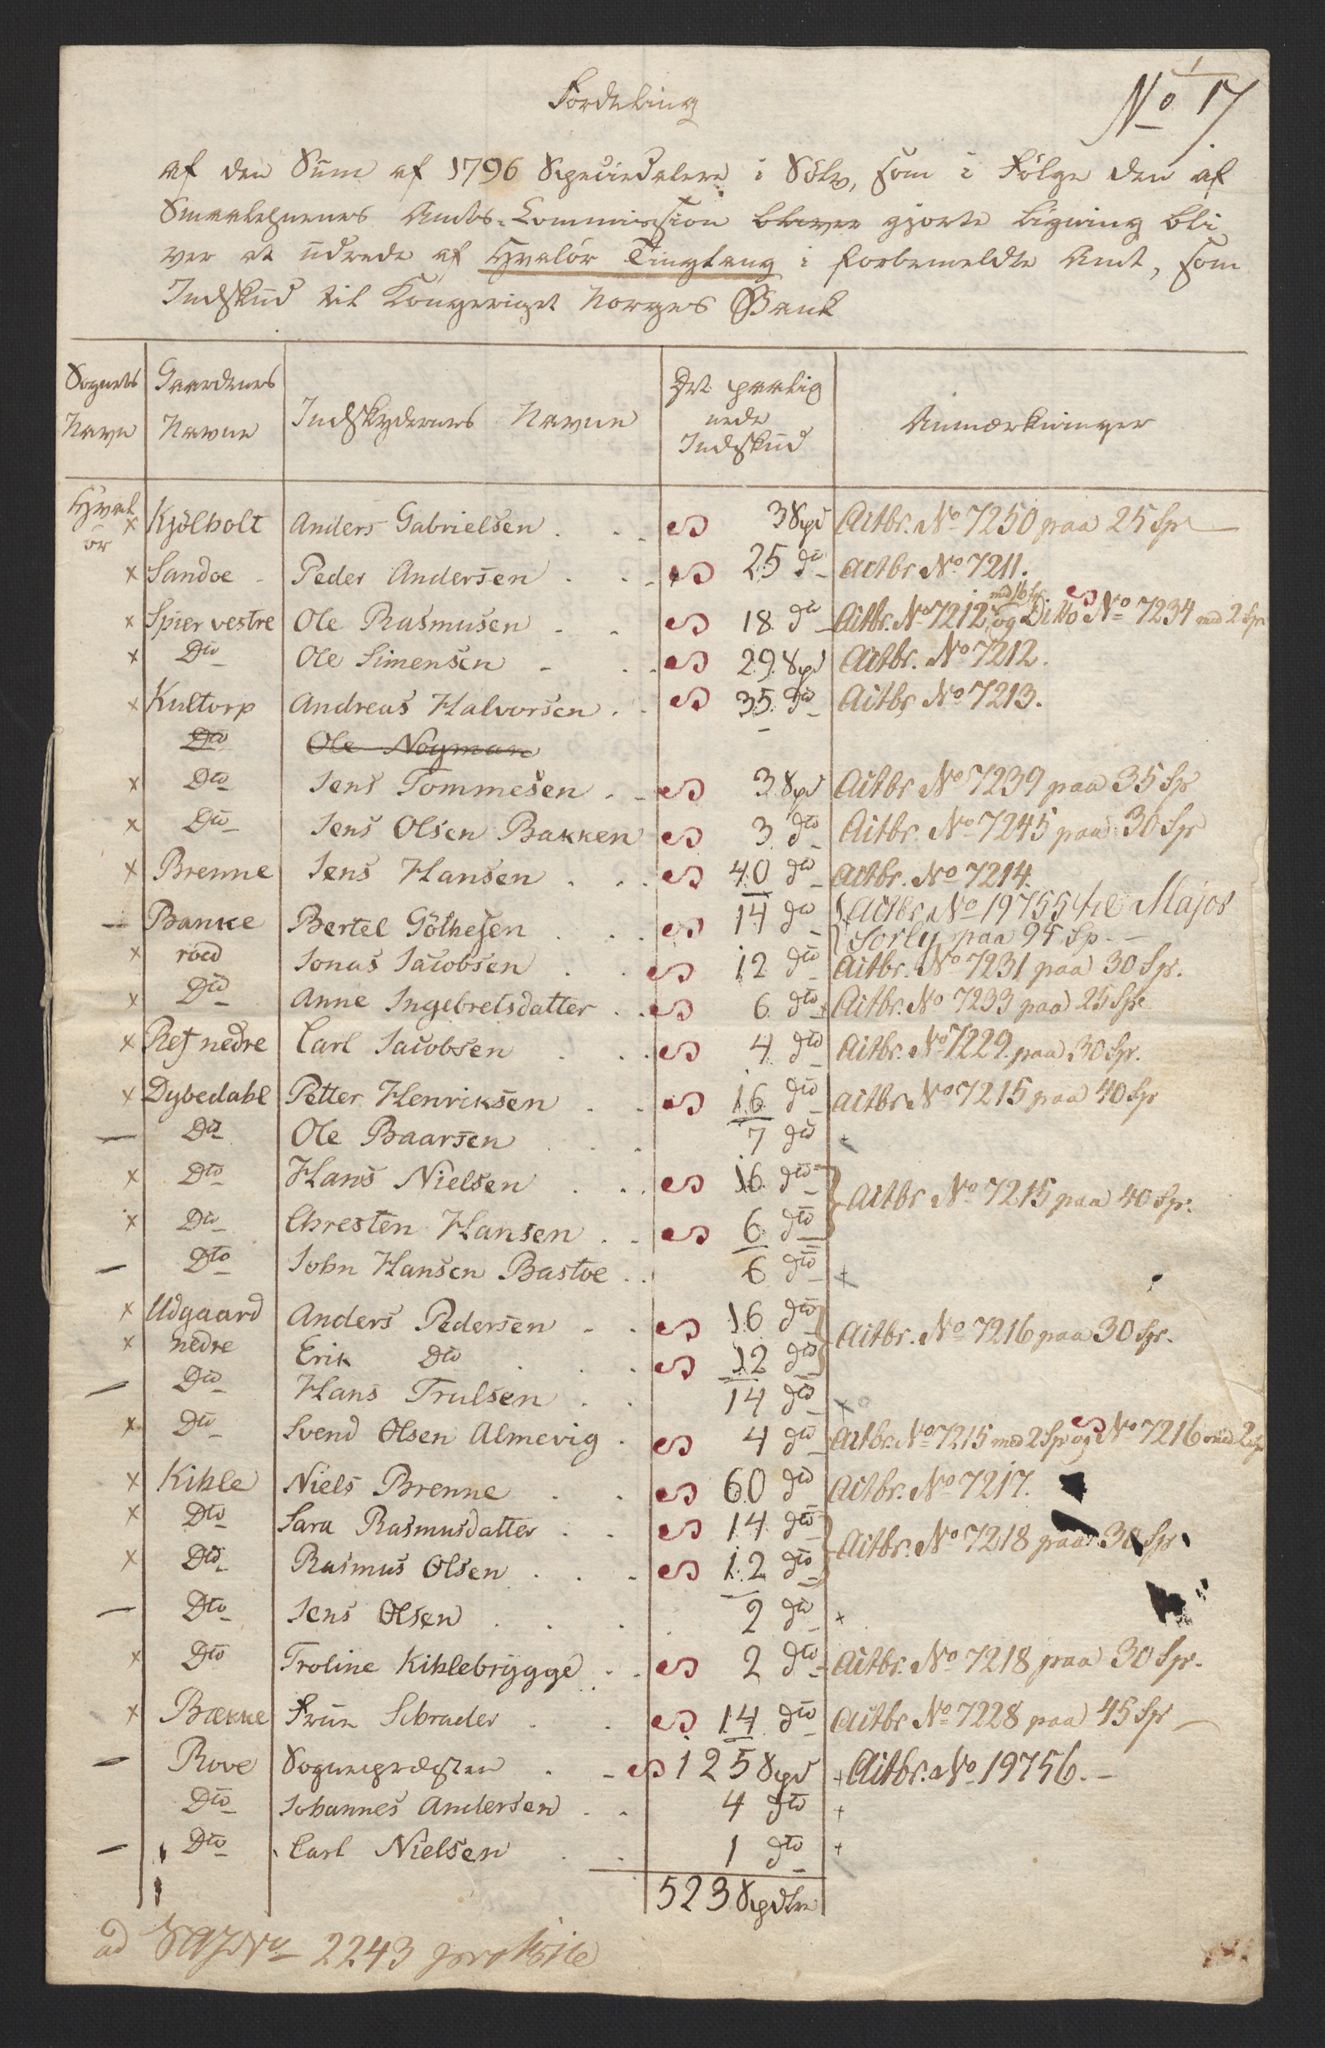 No 17
Fordeling
af den Sum af 1796 Speciedalere i Sölv, som i Fölge den af
Smaalehnenes Amts-Commission bliver gjorte Ligning bli
ver at udrede af Hvalör Tinglaug i forbemeldte Amt, som
Indskud til Kongeriget Norges Bank
Sognets Navn | Gaardenes Navne | Indskydernes Navne | Det paalig nede Indskud | Anmærkninger
Hval ör × Kjölholt Anders Gabrielsen 3 Spd Actbr. No 7250 paa 25 Sp
× Sandöe Peder Andersen 25 dto Actbr No 7211.
× Spier vestre Ole Rasmusen 18 dto Actbr. No 7212 med 16 Sp. og Ditto No 7234 med 2 Sp
× Dto Ole Simensen 29 Spd Actbr. No 7212.
× Kultorp Andreas Halvorsen 35 dto Actbr. No 7213.
Dto Ole Noyman
× Dto Jens Tommesen 3 Spd Actbr No 7239 paa 35 Sp
× Dto Jens Olsen Bakken 3 dto Actbr. No 7245 paa 30 Sp
× Brenne Jens Hansen 40 dto Actbr. No 7214.
— Banke Bertel Göthesen 14 dto Actbr. No 19755 til Major
Sorly paa 95 Sp.
× röed Jonas Jacobsen 12 dto Actbr. No 7231 paa 30 Sp.
× Dto Anne Ingebretsdatter 6 dto Actbr. No 7233 paa 25 Sp.
× Ref nedre Carl Jacobsen 4 dto Actbr. No 7229 paa 30 Sp.
× Dybedahl Petter Henriksen 16 dto Actbr No 7215 paa 40 Sp
— Dto Ole Baarsen 7 dto +
× Dto Hans Nielsen 16 dto Actbr No 7215 paa 40 Sp.
× Dto Chresten Hansen 6 dto
— Dto John Hansen Bastöe 6 dto +
× Udgaard Anders Pedersen 16 dto Actbr. No 7216 paa 30 Sp.
× nedre Erik Dto 12 dto
— Dto Hans Trulsen 14 dto ×
× Dto Svend Olsen Almevig 4 dto Actbr. No 7215 med 2 Sp og No 7216 med 2 Sp
× Kihle Niels Brenne 60 dto Actbr. No 7217.
× Dto Sara Rasmusdatter 14 dto Actbr. No 7218 paa 30 Sp
× Dto Rasmus Olsen 12 dto
— Dto Jens Olsen 2 dto +
× Dto Troline Kihlebrygge 2 dto Actbr. No 7218 paa 30 Sp.
× Bække Fruе Schrader 14 dto Actbr No 7228 paa 45 Sp
— Rove Sognepræsten 125 Spd + Actbr. No 19756.
Dto Johannes Andersen 4 dto +
— Dto Carl Nielsen 1 dto +
523 Spdlr
ad No 2243